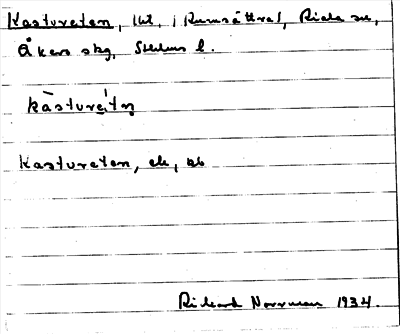 Kastureten, lht, i Rumsättra, Riala sn,
Åkers skg, Sthlms l.
kàsturé̀tn
Kastureten, ek, ab
Rickard Norrman 1934.